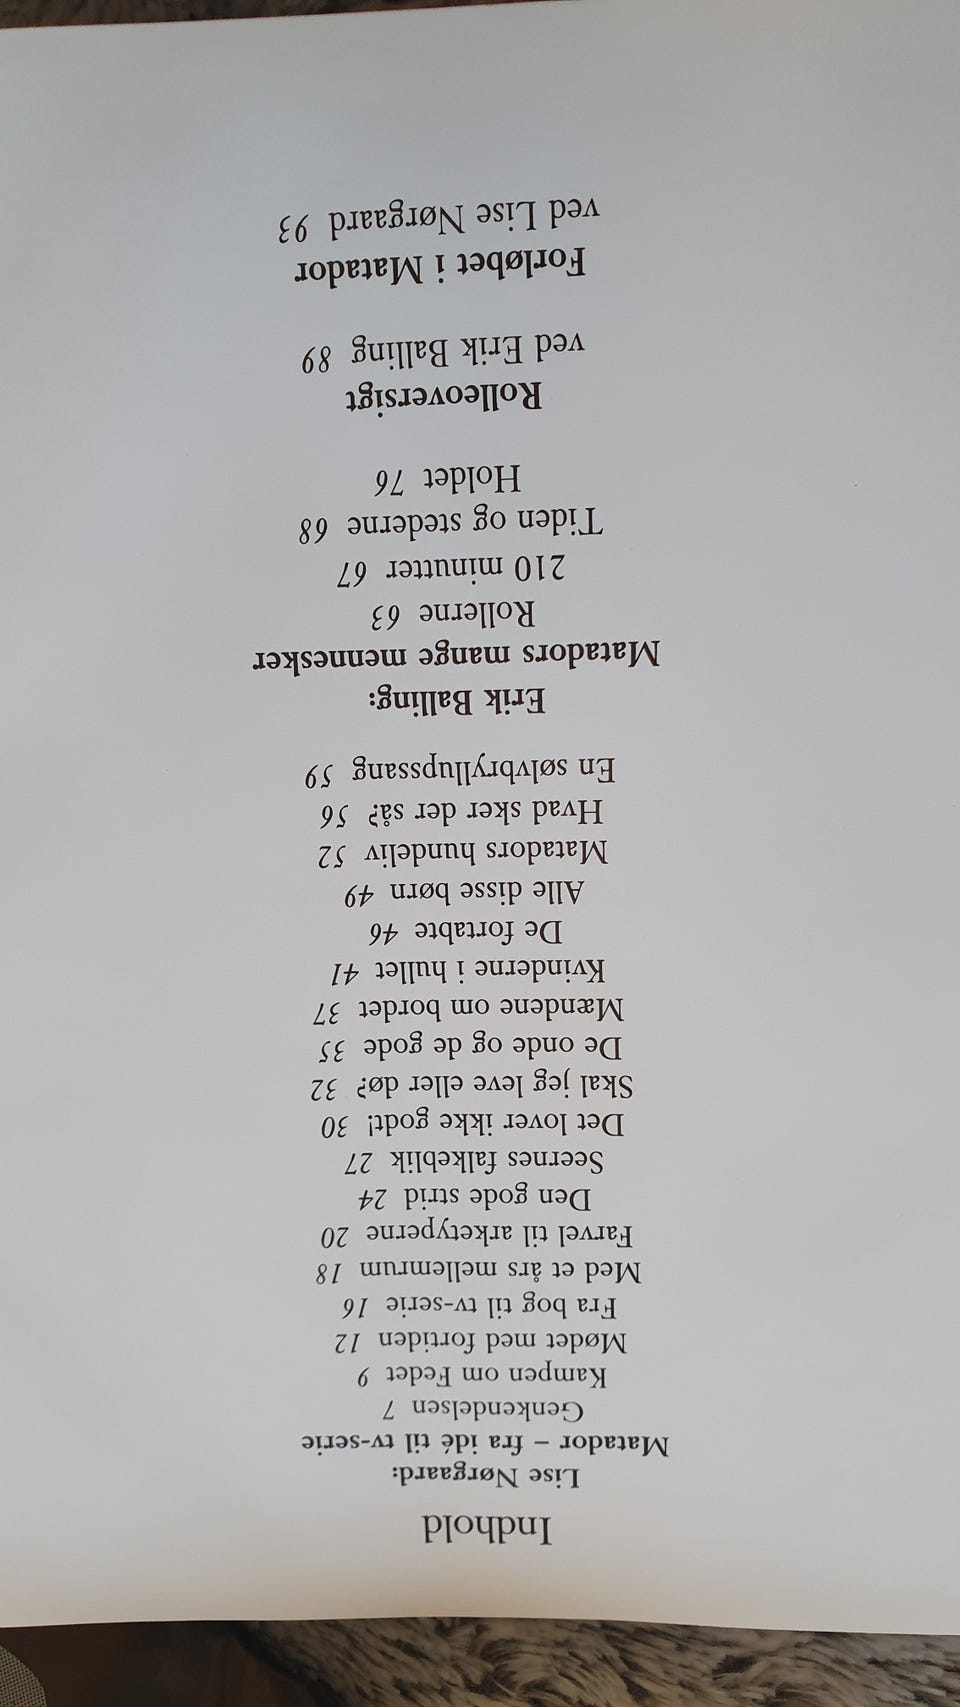 Indhold
Lise Nørgaard:
Matador – fra idé til tv-serie
Genkendelsen 7
Kampen om Fedet 9
Mødet med fortiden 12
Fra bog til tv-serie 16
Med et års mellemrum 18
Farvel til arketyperne 20
Den gode strid 24
Seernes falkeblik 27
Det lover ikke godt! 30
Skal jeg leve eller dø? 32
De onde og de gode 35
Mændene om bordet 37
Kvinderne i hullet 41
De fortabte 46
Alle disse børn 49
Matadors hundeliv 52
Hvad sker der så? 56
En sølvbryllupssang 59
Erik Balling:
Matadors mange mennesker
Rollerne 63
210 minutter 67
Tiden og stederne 68
Holdet 76
Rolleoversigt
ved Erik Balling 89
Forløbet i Matador
ved Lise Nørgaard 93